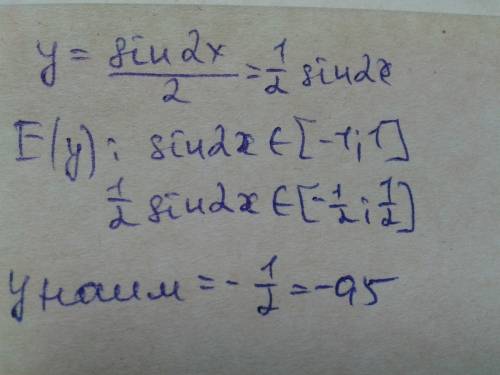 y = sin2x/2 = 1/2 sin2x
E(y): sin2x ∈ [-1; 1]
1/2 sin2x ∈ [-1/2; 1/2]
y наим = -1/2 = -0,5